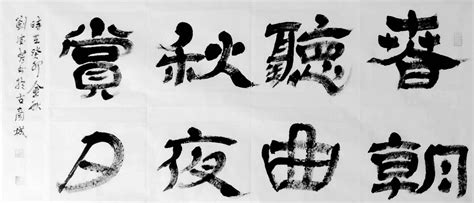 春朝
聽曲
秋夜
賞月
時在癸卯金秋
劉書於古商城